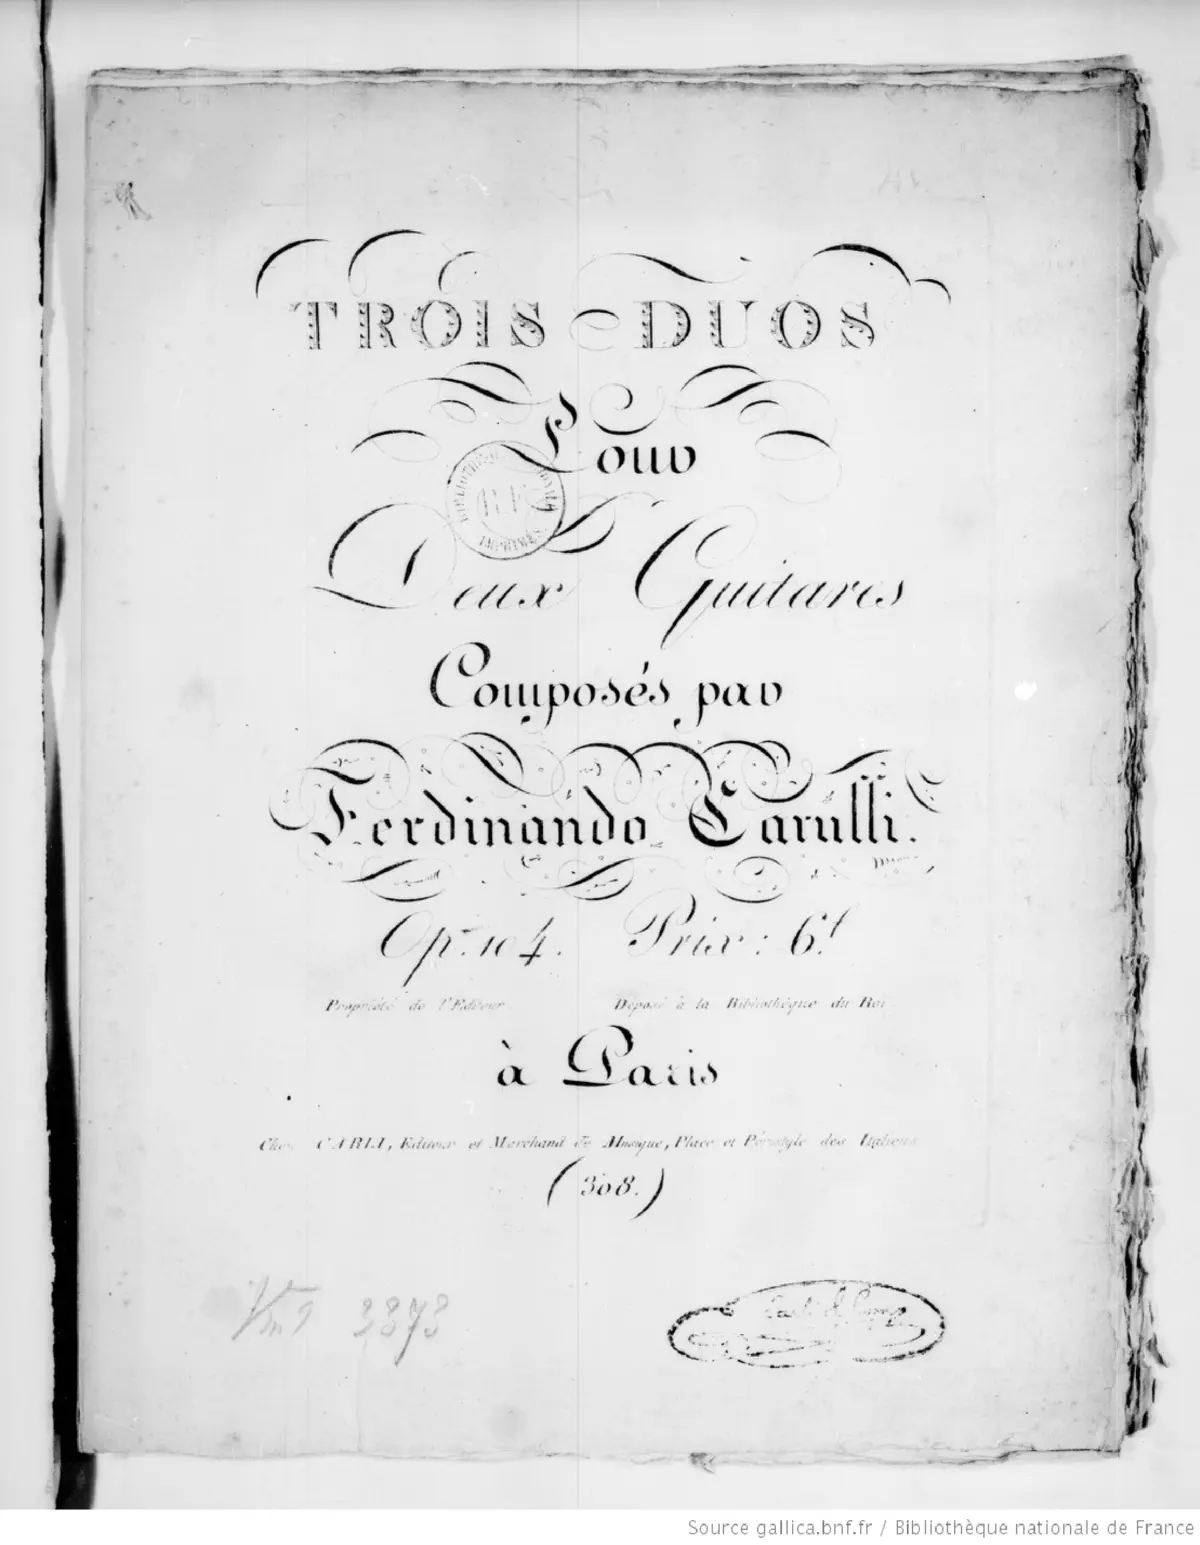 TROIS DUOS
Pour
BIBLIOTHÈQUE ROYALE
IMPRIMÉS
Deux Guitares
Composés par
Ferdinando Carulli.
Op. 104. Prix: 6.f
Propriété de l'Editeur. Déposé à la Bibliothèque du Roi.
à Paris
Chez CARLI, Editeur et Marchand de Musique, Place et Péristyle des Italiens
(308.)
Vm9 3878
Source gallica.bnf.fr / Bibliothèque nationale de France